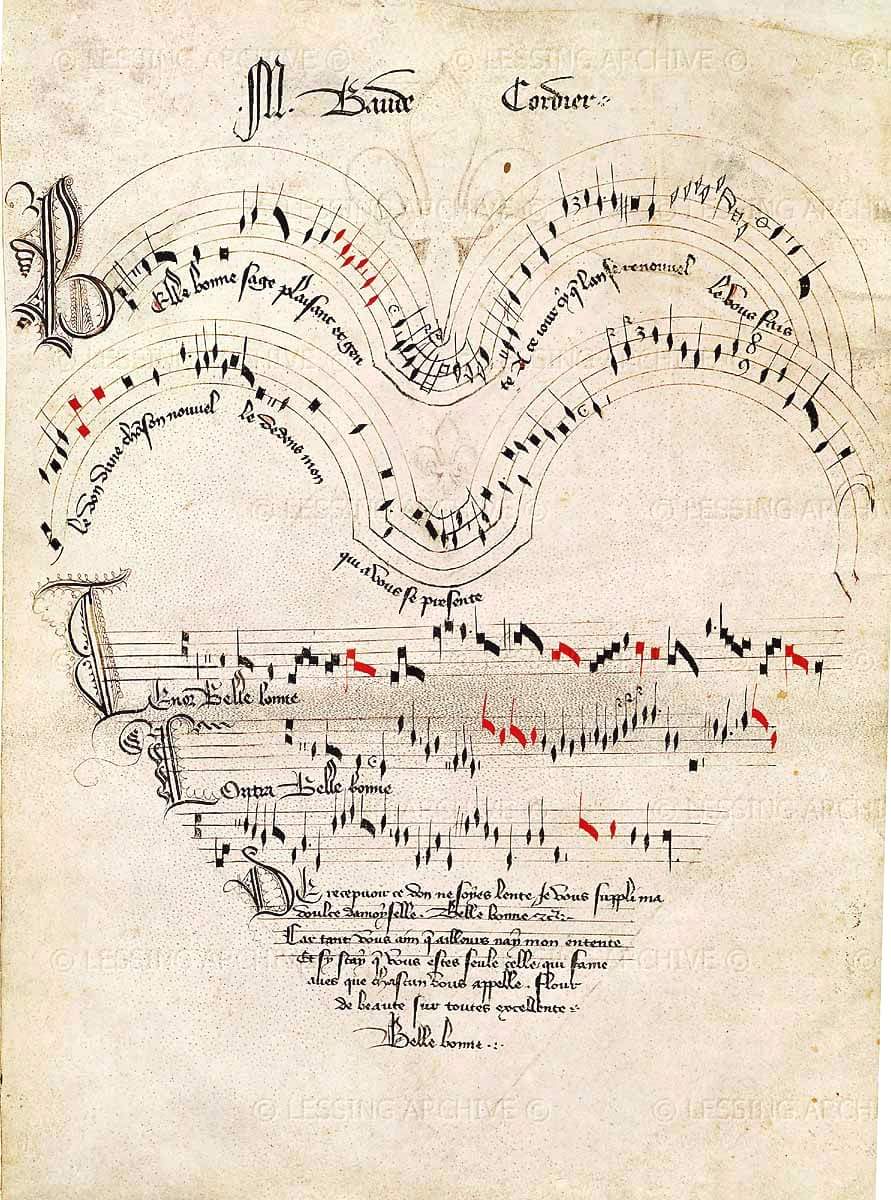 © LESSING ARCHIVE © © LESSING ARCHIVE ©
.M. Baude Cordier
Elle bonne sage plaisant et gen
te A ce jour cy q̃ lan se renouvel
le vous fais
le don dune chanson nouvel
le dedens mon
qui a vous se presente
Enor Belle bonne
Ontra Belle bonne
DE recepvoir ce don ne soyes lente Je vous suppli ma
doulce damoyselle. Belle bonne
Car tant vous aim q̃ ailleurs nay mon entente
Et sy scay q̃ vous estes seule celle qui fame
aves que chascun vous appelle. Flour
de beaute sur toutes excellente
Belle bonne
© LESSING ARCHIVE © © LESSING ARCHIVE